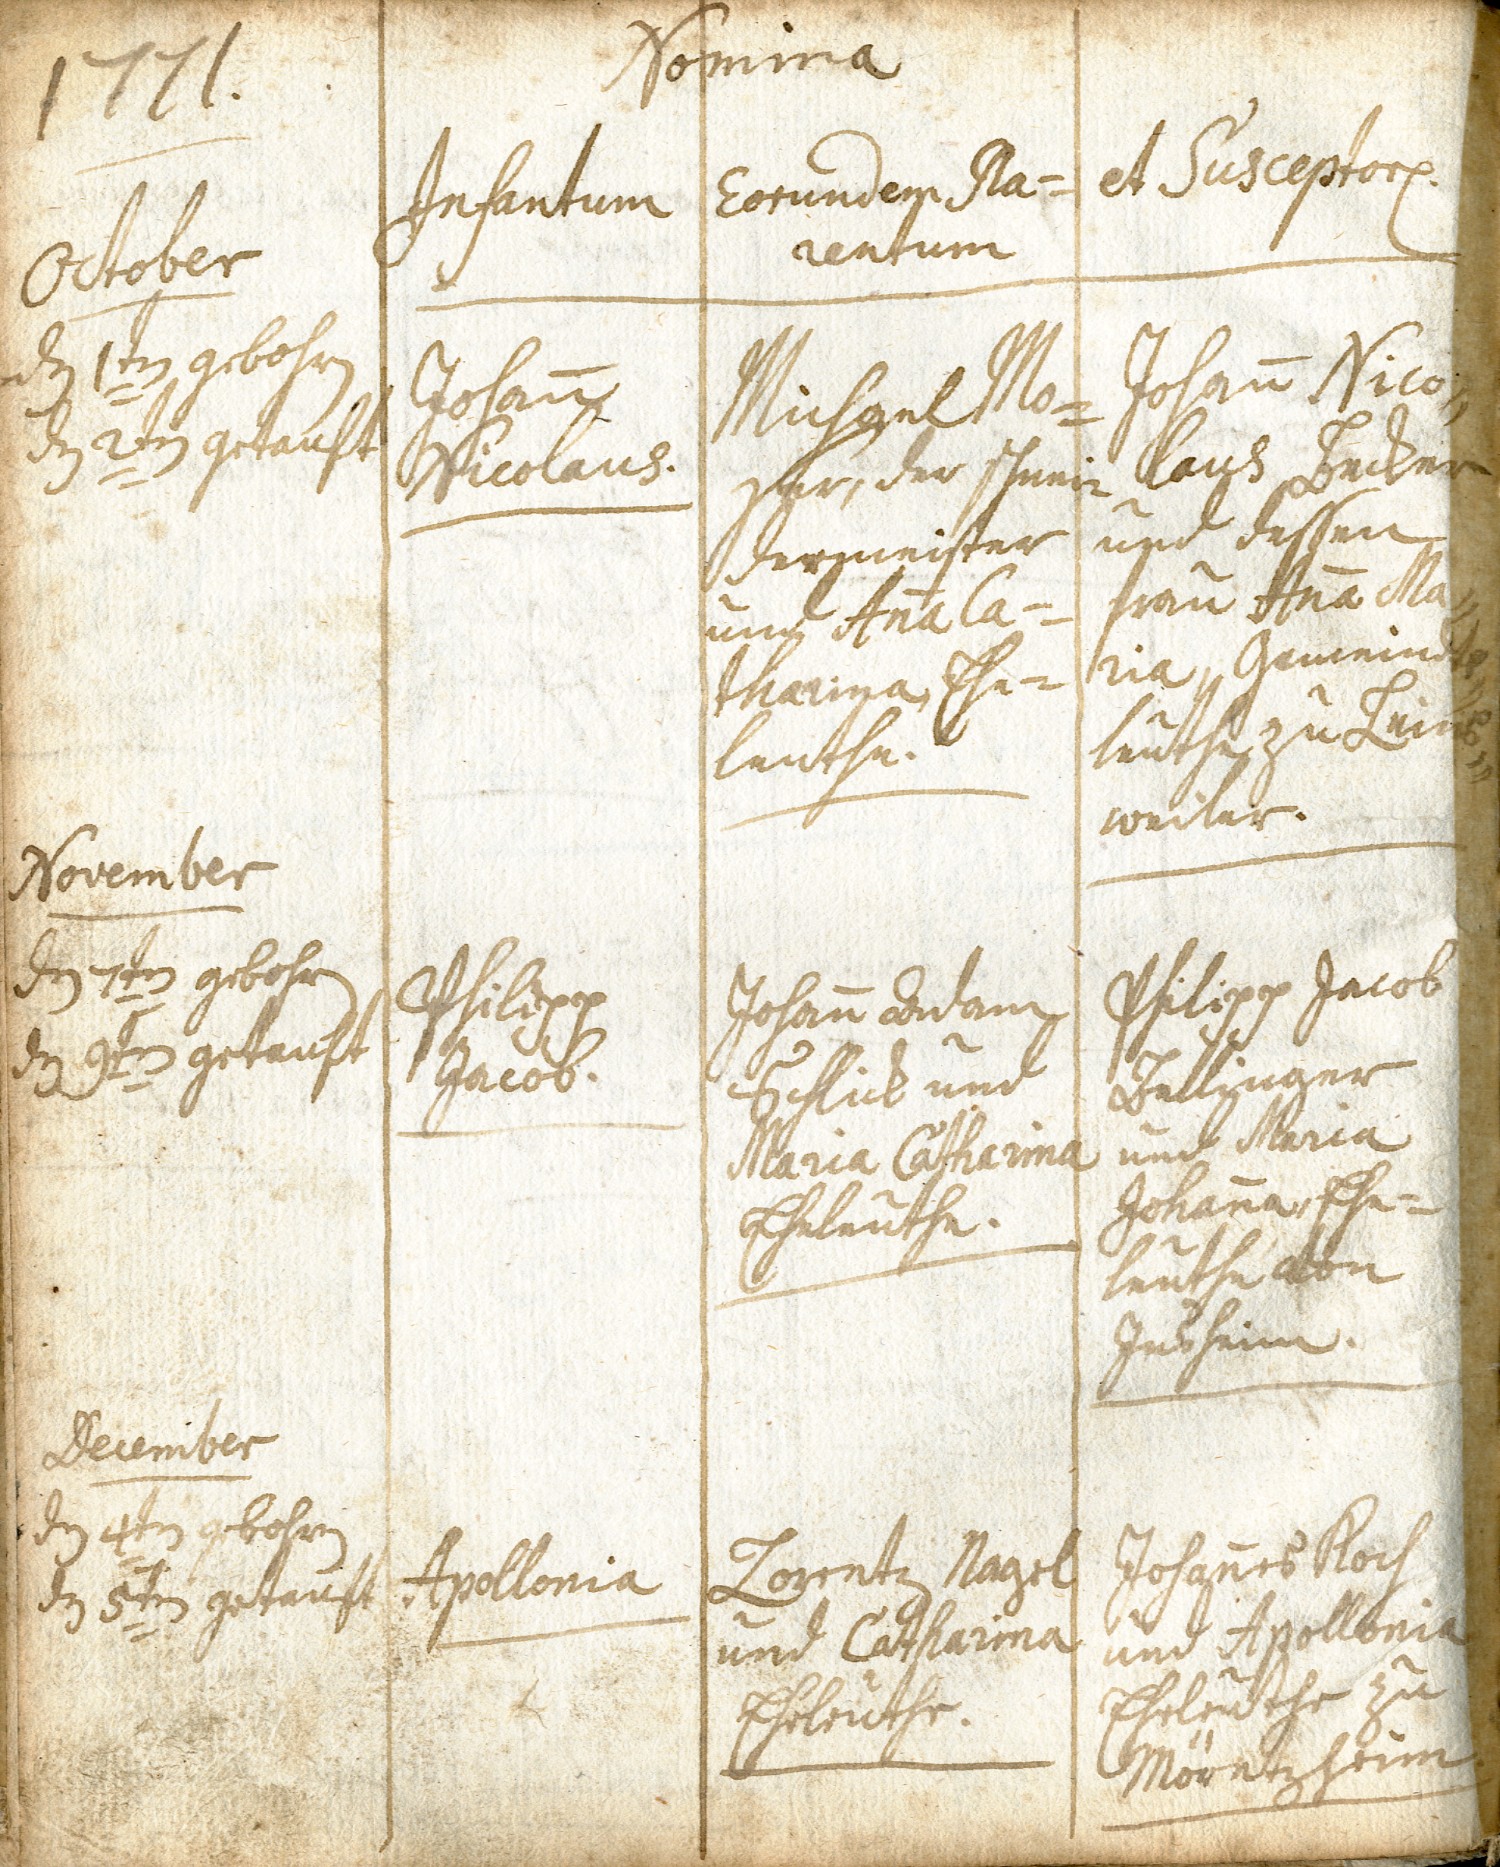 1771.
Nomina
Infantum
Eorundem Pa=
rentum
et Susceptor.
October
den 1ten gebohrn
den 2ten getauft
Johann
Nicolaus.
Michael Mo=
der schnei=
dermeister
und Anna Ca=
tharina, Ehe=
leuthe.
Johann Nico„
laus Becker
und dessen
frau Anna Ma„
ria, Gemeinds„
leuthe zu Leins„
weiler.
November
den 7ten gebohrn
den 9ten getauft
Philipp
Jacob.
Johann Adam
Schlick und
Maria Catharina
Eheleuthe.
Philipp Jacob
Zellinger
und Maria
Johanna, Ehe=
leuthe von
Insheim.
December
den 4ten gebohrn
den 5ten getauft
Apollonia
Lorentz Nagel
und Catharina
Eheleuthe.
Johannes Koch
und Apollonia
Eheleuthe zu
Mörntzheim